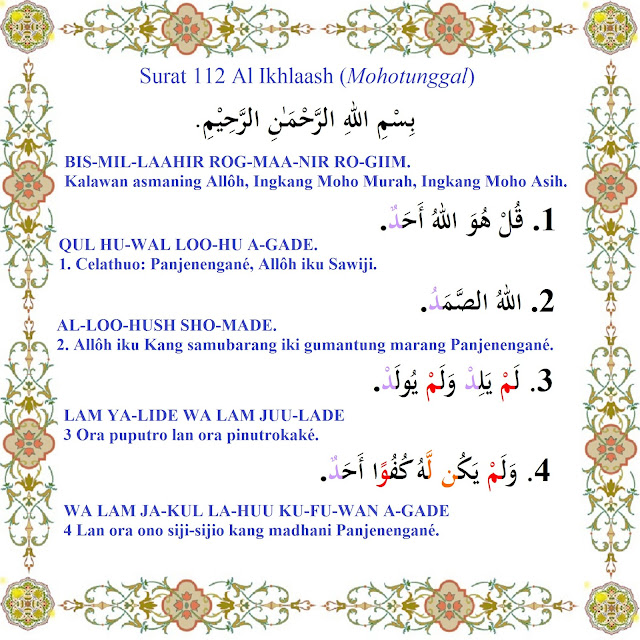 Surat 112 Al Ikhlaash (Mohotunggal)
بِسْمِ اللهِ الرَّحْمَـٰنِ الرَّحِيْمِ.
BIS-MIL-LAAHIR ROG-MAA-NIR RO-GIIM.
Kalawan asmaning Allôh, Ingkang Moho Murah, Ingkang Moho Asih.
1. قُلْ هُوَ اللهُ أَحَدٌ.
QUL HU-WAL LOO-HU A-GADE.
1. Celathuo: Panjenengané, Allôh iku Sawiji.
2. اللهُ الصَّمَدُ.
AL-LOO-HUSH SHO-MADE.
2. Allôh iku Kang samubarang iki gumantung marang Panjenengané.
3. لَمْ يَلِدْ وَلَمْ يُولَدْ.
LAM YA-LIDE WA LAM JUU-LADE
3 Ora puputro lan ora pinutrokaké.
4. وَلَمْ يَكُن لَّهُ كُفُوًا أَحَدٌ.
WA LAM JA-KUL LA-HUU KU-FU-WAN A-GADE
4 Lan ora ono siji-sijio kang madhani Panjenengané.